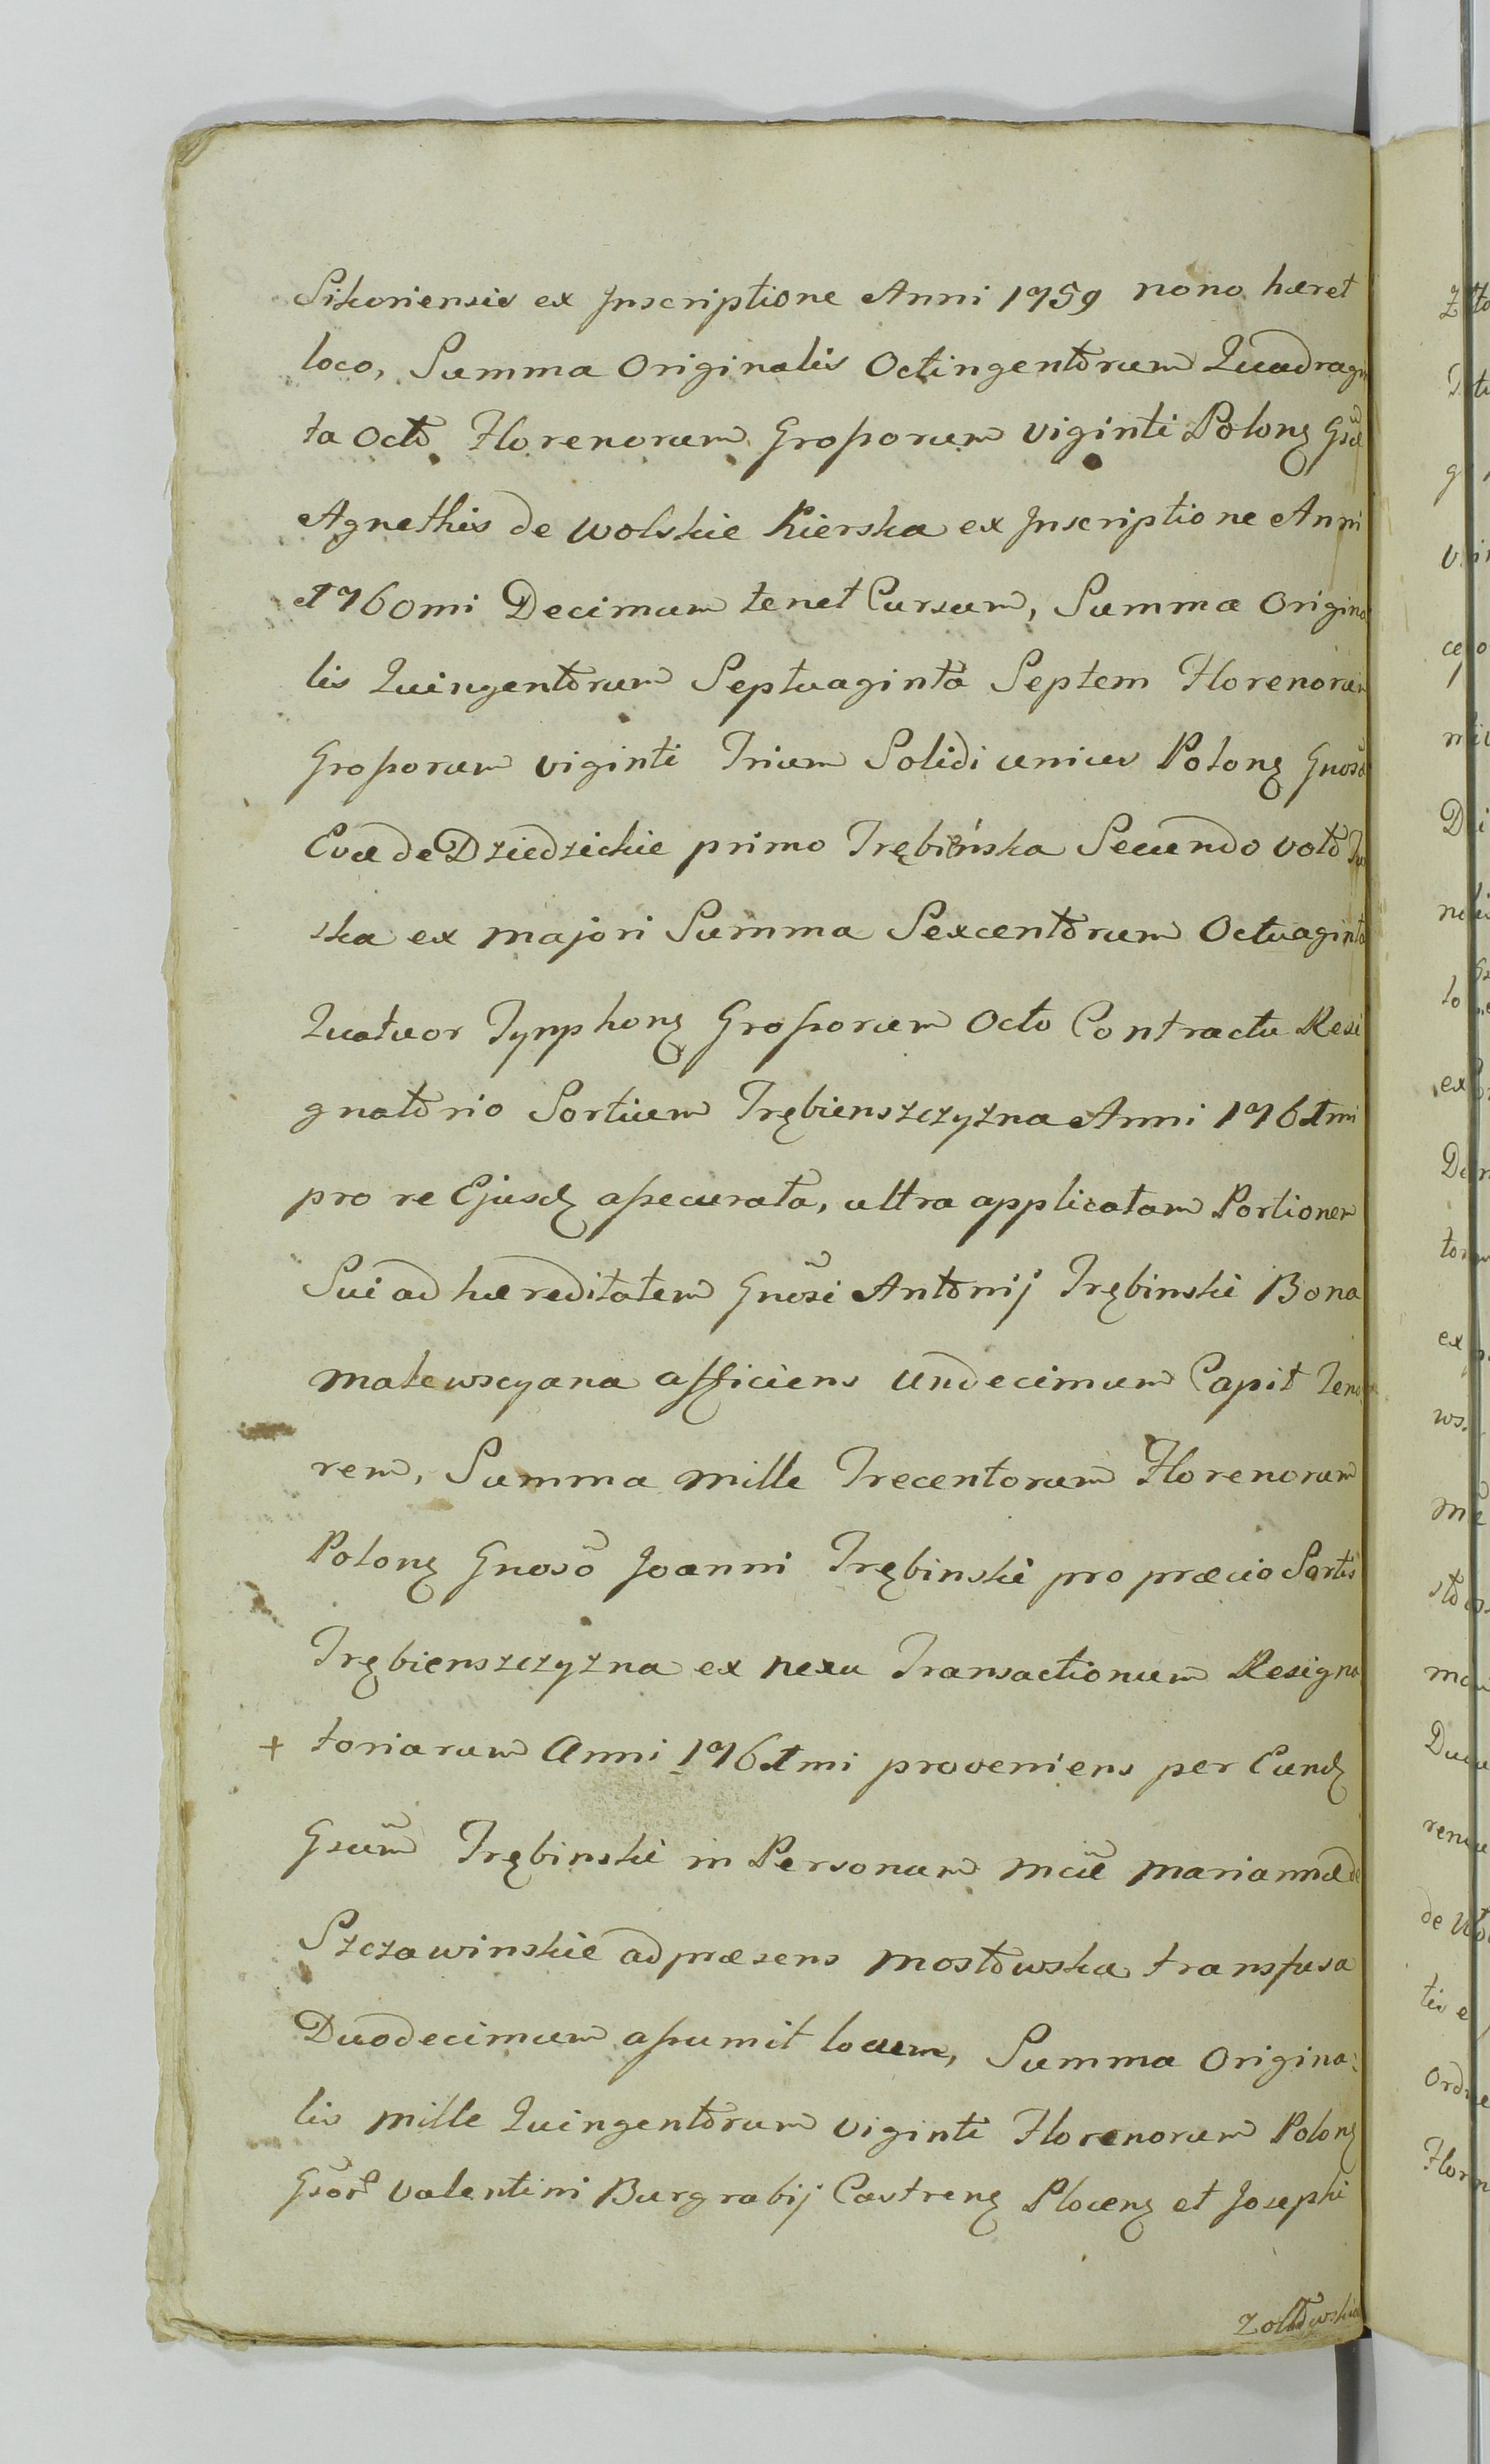 Sikoriensis ex Inscriptione Anni 1759 nono haeret
loco, Summa Originalis Octingentorum Quadragin
ta Octo Florenorum Grossorum viginti Polonꝫ Gsae
Agnethis de Wolskie Kierska ex Inscriptione Anni
1760mi Decimum tenet Cursum, Summa Origina
lis Quingentorum Septuaginta Septem Florenorum
Grossorum viginti Trium Solidi unius Polonꝫ Gnosae
Evae de Dziedzickie primo Trębińska Secundo voto
ska ex majori Summa Sexcentorum Octuaginta
Quatuor Tynphonꝫ Grossorum Octo Contractu Resi
gnatorio Sortium Trębienszczyzna Anni 1761mi
pro re Ejusdꝫ assecurata, ultra applicatam Portionem
Sui ad haereditatem Gnosi Antonij Trębinski Bona
Malewscyana afficiens undecimum Capit Teno
rem, Summa mille Trecentorum Florenorum
Polonꝫ Gnoso Joanni Trębinski pro praecio Sortis
Trębienszczyzna ex nexu Transactionum Resigna
+ toriarum Anni 1761mi proveniens per Eundꝫ
Gsum Trębinski in Personam Mcae Mariannae de
Szczawinskie ad praesens Mostowska transfusa
Duodecimum assumit locum, Summa Origina:
lis mille Quingentorum viginti Florenorum Polonꝫ
Gsor Valentini Burgrabij Castrenꝫ Plocenꝫ et Josephi
Zoltowskie